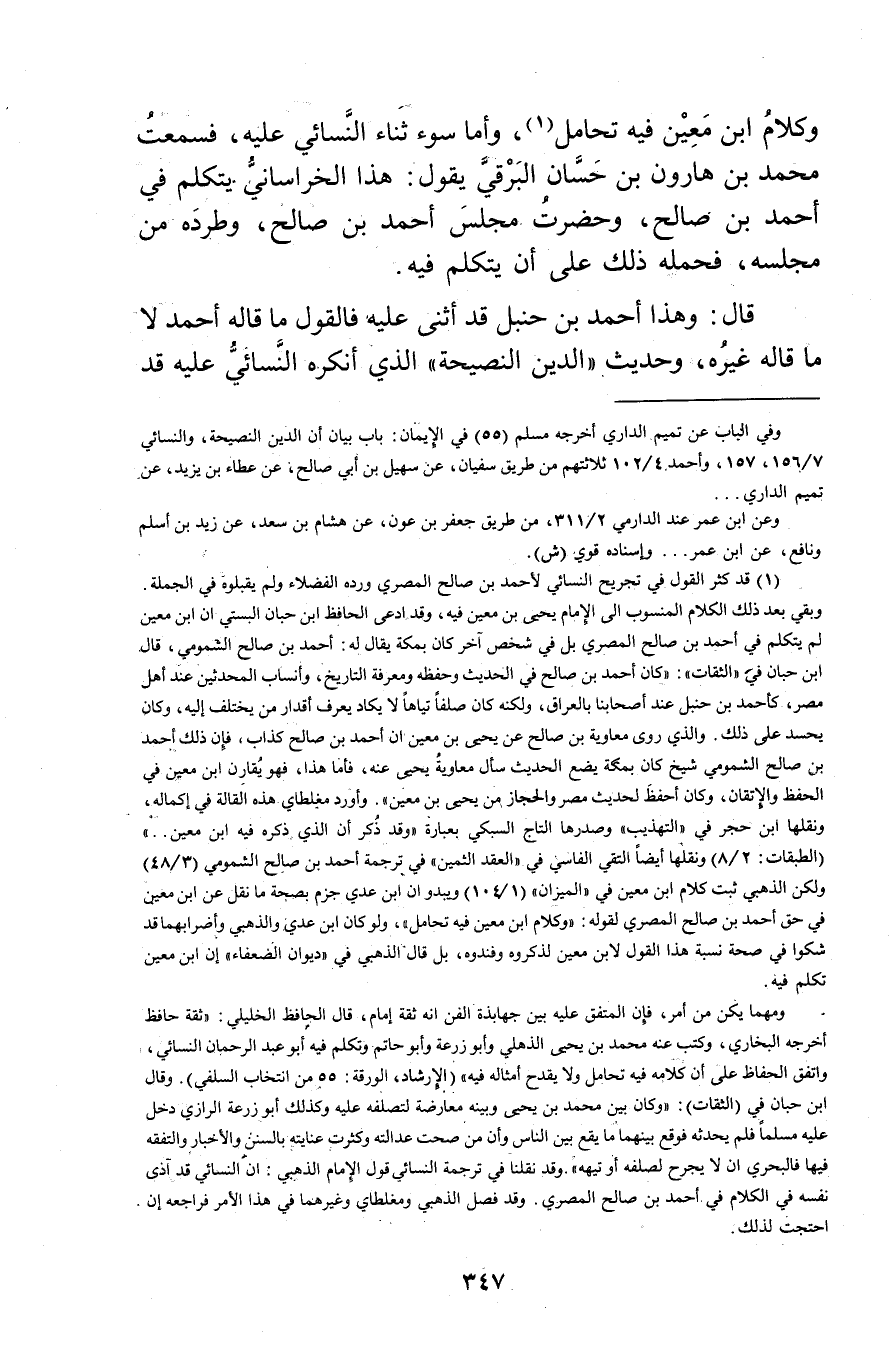 وكلامُ ابن مَعِيْن فيه تحامل(١)، وأما سوء ثَناء النَّسائي عليه، فسمعتُ
محمد بن هارون بن حَسَّان البَرْقيَّ يقول: هذا الخراسانيُّ يتكلم في
أحمد بن صالح، وحضرتُ مجلسَ أحمد بن صالح، وطردَه من
مجلسه، فحمله ذلك على أن يتكلم فيه.
قال: وهذا أحمد بن حنبل قد أثنى عليه فالقول ما قاله أحمد لا
ما قاله غيرُه، وحديث «الدين النصيحة» الذي أنكره النَّسائيُّ عليه قد
وفي الباب عن تميم الداري أخرجه مسلم (٥٥) في الإيمان: باب بيان أن الدين النصيحة، والنسائي
١٥٦/٧، ١٥٧، وأحمد ١٠٢/٤ ثلاثتهم من طريق سفيان، عن سهيل بن أبي صالح، عن عطاء بن يزيد، عن
تميم الداري...
وعن ابن عمر عند الدارمي ٣١١/٢، من طريق جعفر بن عون، عن هشام بن سعد، عن زيد بن أسلم
ونافع، عن ابن عمر... وإسناده قوي (ش).
(١) قد كثر القول في تجريح النسائي لأحمد بن صالح المصري ورده الفضلاء ولم يقبلوة في الجملة.
وبقي بعد ذلك الكلام المنسوب الى الإمام يحيى بن معين فيه، وقد ادعى الحافظ ابن حبان البستي ان ابن معين
لم يتكلم في أحمد بن صالح المصري بل في شخص آخر كان بمكة يقال له: أحمد بن صالح الشمومي، قال
ابن حبان في «الثقات»: «كان أحمد بن صالح في الحديث وحفظه ومعرفة التاريخ، وأنساب المحدثين عند أهل
مصر، كأحمد بن حنبل عند أصحابنا بالعراق، ولكنه كان صلفاً تياهاً لا يكاد يعرف أقدار من يختلف إليه، وكان
يحسد على ذلك. والذي روى معاوية بن صالح عن يحيى بن معين ان أحمد بن صالح كذاب، فإن ذلك أحمد
بن صالح الشمومي شيخ كان بمكة يضع الحديث سأل معاويةُ يحيى عنه، فأما هذا، فهو يُقارن ابن معين في
الحفظ والإتقان، وكان أحفظَ لحديث مصر والحجاز من يحيى بن معين». وأورد مغلطاي هذه القالة في إكماله،
ونقلها ابن حجر في «التهذيب» وصدرها التاج السبكي بعبارة «وقد ذُكر أن الذي ذكره فيه ابن معين..»
(الطبقات: ٨/٢) ونقلها أيضاً التقي الفاسي في «العقد الثمين» في ترجمة أحمد بن صالح الشمومي (٤٨/٣)
ولكن الذهبي ثبت كلام ابن معين في «الميزان» (١٠٤/١) ويبدو ان ابن عدي جزم بصحة ما نقل عن ابن معين
في حق أحمد بن صالح المصري لقوله: «وكلام ابن معين فيه تحامل»، ولو كان ابن عدي والذهبي وأضرابهما قد
شكوا في صحة نسبة هذا القول لابن معين لذكروه وفندوه، بل قال الذهبي في «ديوان الضعفاء» إن ابن معين
تكلم فيه.
ومهما يكن من أمر، فإن المتفق عليه بين جهابذة الفن انه ثقة إمام، قال الحافظ الخليلي: «ثقة حافظ
أخرجه البخاري، وكتب عنه محمد بن يحيى الذهلي وأبو زرعة وأبو حاتم وتكلم فيه أبو عبد الرحمان النسائي،
واتفق الحفاظ على أن كلامه فيه تحامل ولا يقدح أمثاله فيه» (الإرشاد، الورقة: ٥٥ من انتخاب السلفي). وقال
ابن حبان في (الثقات): «وكان بين محمد بن يحيى وبينه معارضة لتصلفه عليه وكذلك أبو زرعة الرازي دخل
عليه مسلماً فلم يحدثه فوقع بينهما ما يقع بين الناس وأن من صحت عدالته وكثرت عنايته بالسنن والأخبار والتفقه
فيها فالبحري ان لا يجرح لصلفه أو تيهه». وقد نقلنا في ترجمة النسائي قول الإمام الذهبي: ان النسائي قد آذى
نفسه في الكلام في أحمد بن صالح المصري. وقد فصل الذهبي ومغلطاي وغيرهما في هذا الأمر فراجعه إن
احتجت لذلك.
٣٤٧